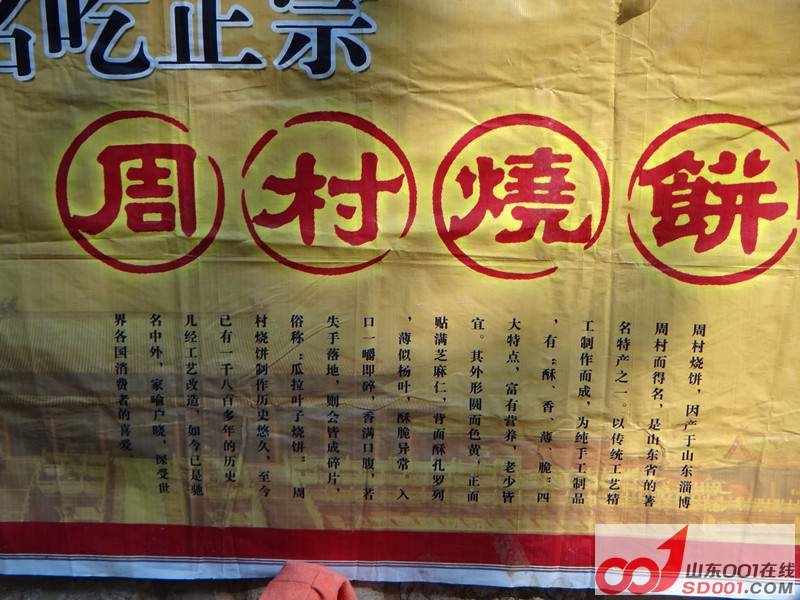 名吃正宗
周村燒餅
周村烧饼，因产于山东淄博
周村而得名，是山东省的著
名特产之一。以传统工艺精
工制作而成，为纯手工制品
，有“酥、香、薄、脆”四
大特点，富有营养，老少皆
宜。其外形圆而色黄，正面
贴满芝麻仁，背面酥孔罗列
，薄似杨叶，酥脆异常。入
口一嚼即碎，香满口腹，若
失手落地，则会皆成碎片，
俗称“瓜拉叶子烧饼”周
村烧饼制作历史悠久，至今
已有一千八百多年的历史
几经工艺改造，如今已是驰
名中外，家喻户晓，深受世
界各国消费者的喜爱
001山东001在线
SD001.COM